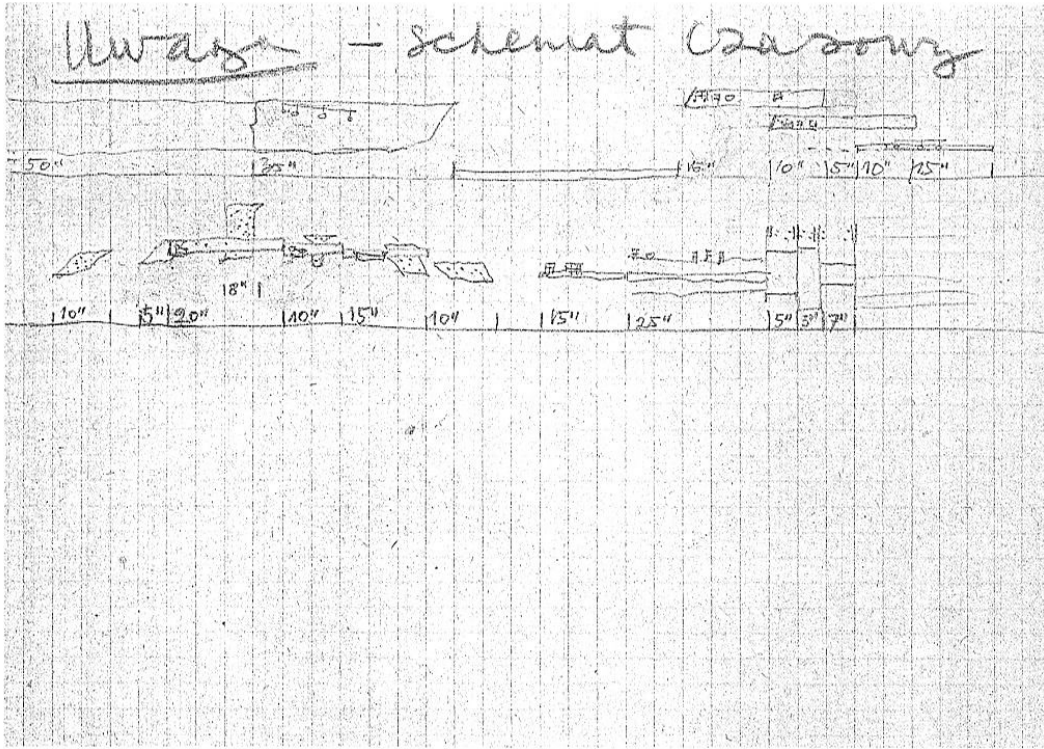 Uwaga – schemat czasowy
50" 35" 15" 10" 5" 10" 15"
18"
10" 5" 20" 10" 15" 10" 15" 25" 5" 3" 7"